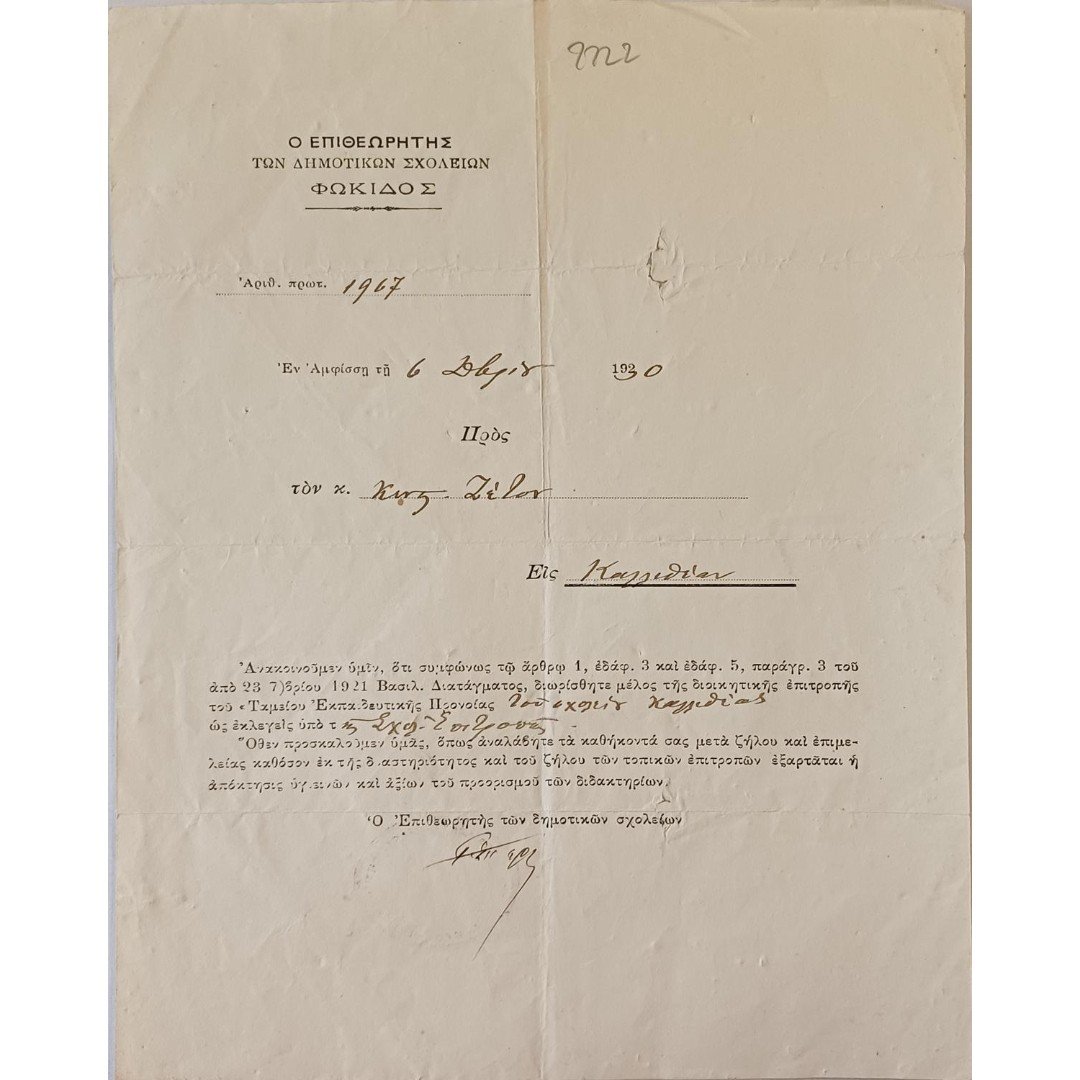 Ο ΕΠΙΘΕΩΡΗΤΗΣ
ΤΩΝ ΔΗΜΟΤΙΚΩΝ ΣΧΟΛΕΙΩΝ
ΦΩΚΙΔΟΣ
Ἀριθ. πρωτ. 1967
Ἐν Ἀμφίσσῃ τῇ 6 1930
Πρὸς
τὸν κ. Ζέτον
Εἰς Καλλιθέαν
Ἀνακοινοῦμεν ὑμῖν, ὅτι συμφώνως τῷ ἄρθρῳ 1, ἐδάφ. 3 καὶ ἐδάφ. 5, παράγρ. 3 τοῦ
ἀπὸ 23 7)βρίου 1921 Βασιλ. Διατάγματος, διωρίσθητε μέλος τῆς διοικητικῆς ἐπιτροπῆς
τοῦ «Ταμείου Ἐκπαιδευτικῆς Προνοίας τοῦ σχολείου Καλλιθέας
ὡς ἐκλεγεὶς ὑπὸ τῆς Σχολ. Ἐπιτροπῆς
Ὅθεν προσκαλοῦμεν ὑμᾶς, ὅπως ἀναλάβητε τὰ καθήκοντά σας μετὰ ζήλου καὶ ἐπιμε-
λείας καθόσον ἐκ τῆς δραστηριότητος καὶ τοῦ ζήλου τῶν τοπικῶν ἐπιτροπῶν ἐξαρτᾶται ἡ
ἀπόκτησις ὑγιεινῶν καὶ ἀξίων τοῦ προορισμοῦ τῶν διδακτηρίων.
Ὁ Ἐπιθεωρητὴς τῶν δημοτικῶν σχολείων